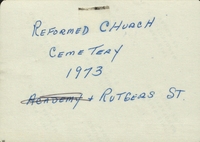 REFORMED CHURCH
CEMETERY
1973
ACADEMY + RUTGERS ST.